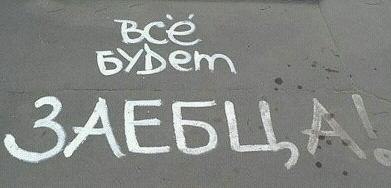 всё
будет
ЗАЕБЦА!